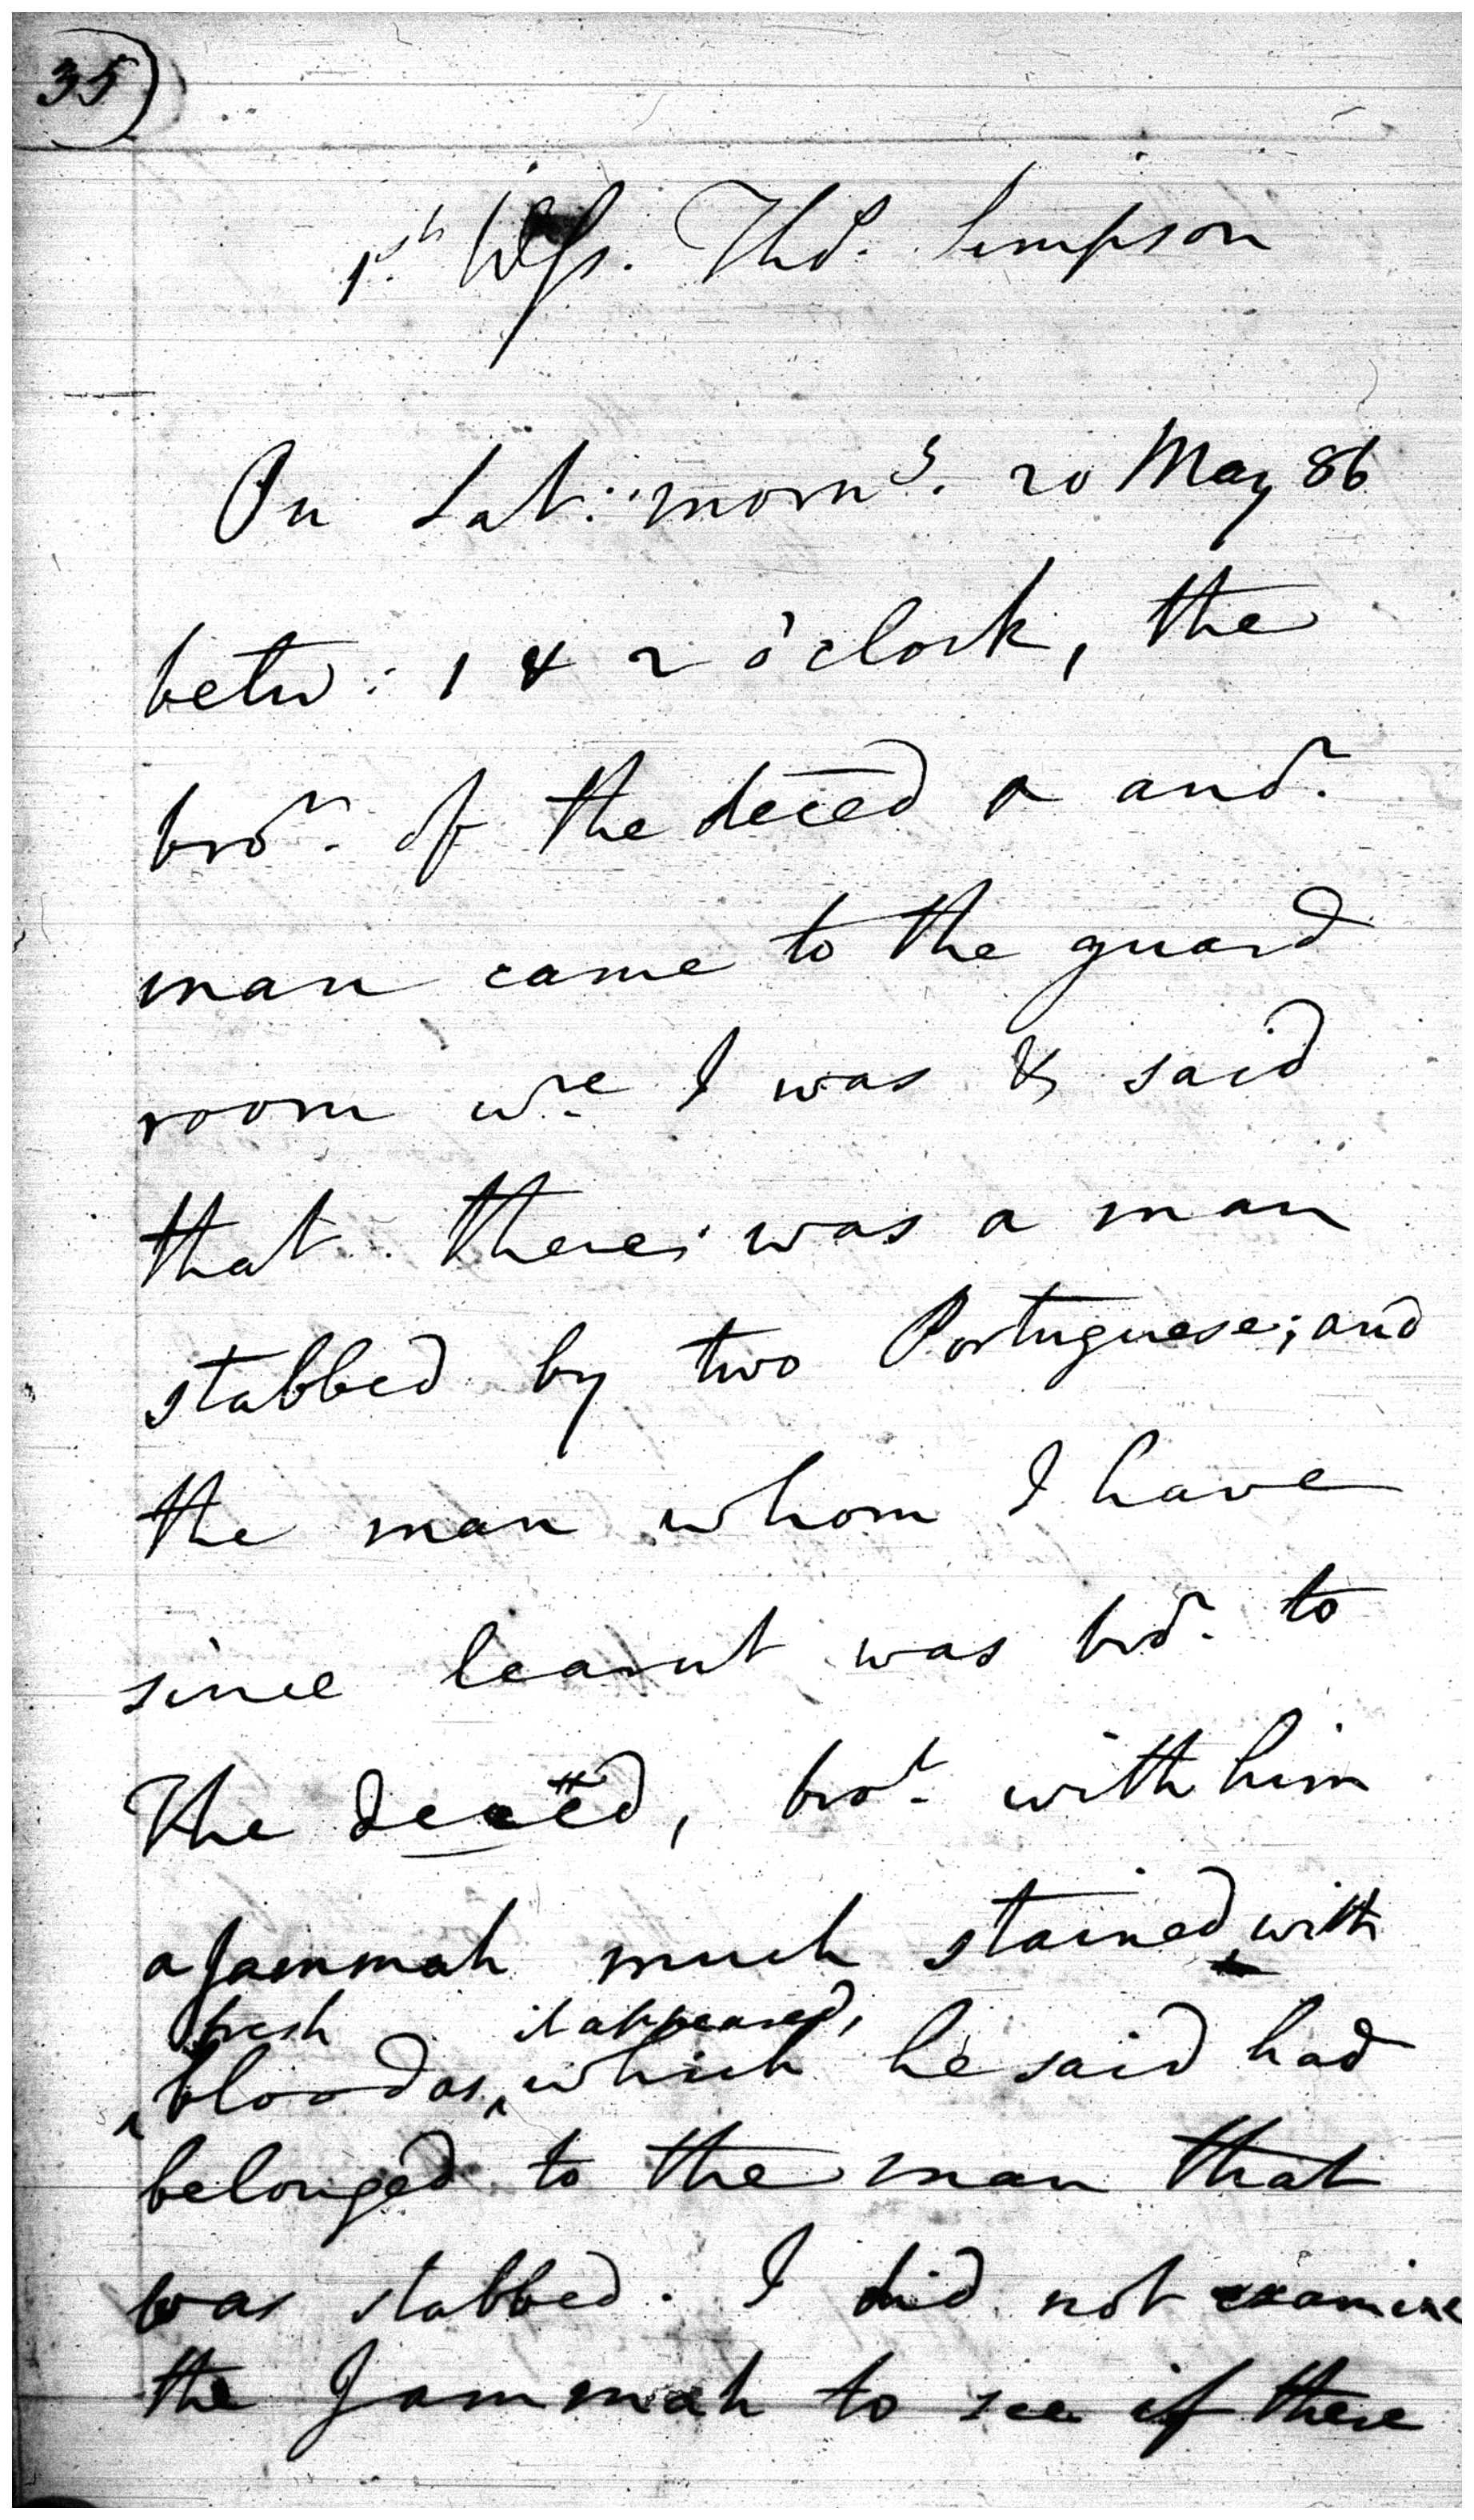 35
1st Wss. Thos. Simpson
On Sat: morng. 20 May 86
betw: 1 & 2 o'clock, the
bror. of the deced & anor.
man came to the guard
room wre I was & said
that there was a man
stabbed by two Portuguese; and
the man whom I have
since learnt was bror. to
the deced, brot. with him
a Jammah much stained with
fresh it appeared,
blood as which he said had
belonged to the man that
was stabbed. I did not examine
the Jammah to see if there